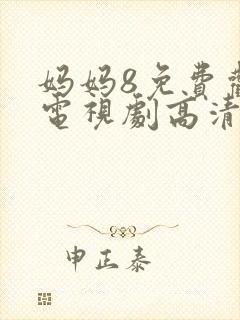 妈妈8免費
電視劇高清
申正泰